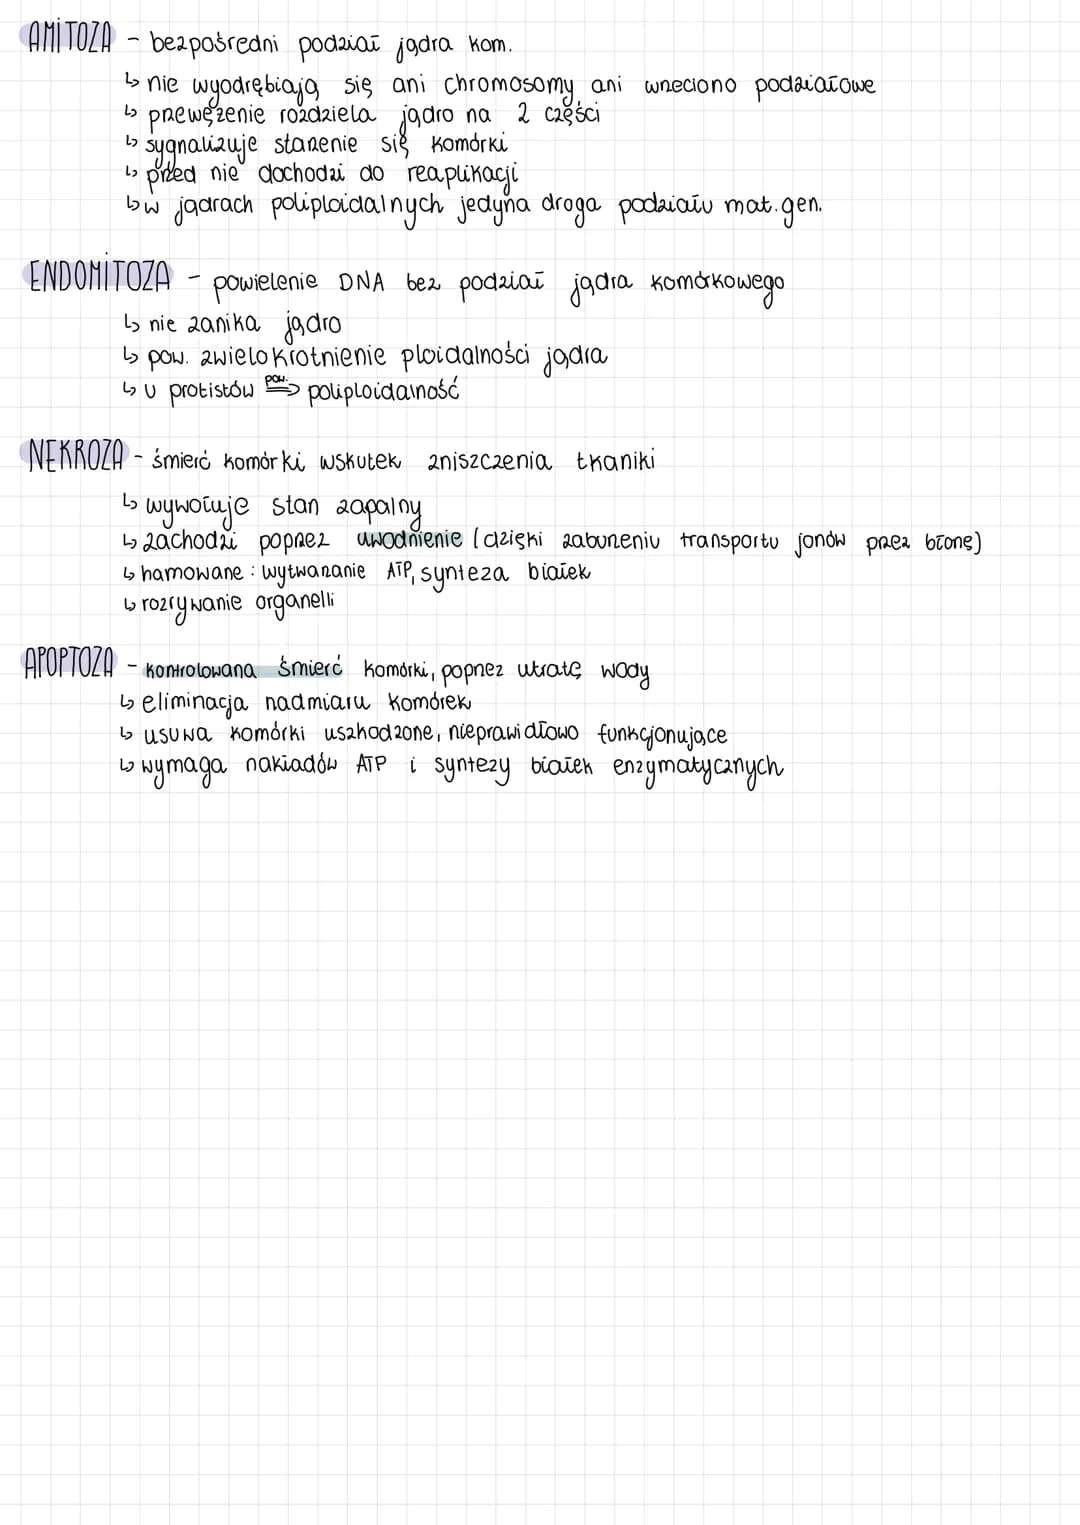 AMITOZA - bezpośredni podział jądra kom.
↳ nie wyodrębiają się ani chromosomy ani wrzeciono podziałowe
↳ przewężenie rozdziela jądro na 2 części
↳ sygnalizuje starzenie się komórki
↳ przed nie dochodzi do reaplikacji
↳ w jądrach poliploidalnych jedyna droga podziału mat.gen.
ENDOMITOZA - powielenie DNA bez podział jądra komórkowego
↳ nie zanika jądro
↳ pow. zwielokrotnienie ploidalności jądra
↳ u protistów pow. => poliploidalność
NEKROZA - śmierć komórki wskutek zniszczenia tkaniki
↳ wywołuje stan zapalny
↳ zachodzi poprzez uwodnienie (dzięki zaburzeniu transportu jonów przez błonę)
↳ hamowane : wytwarzanie ATP, synteza białek
↳ rozrywanie organelli
APOPTOZA - kontrolowana śmierć komórki, poprzez utratę wody
↳ eliminacja nadmiaru komórek
↳ usuwa komórki uszkodzone, nieprawidłowo funkcjonujące
↳ wymaga nakładów ATP i syntezy białek enzymatycznych